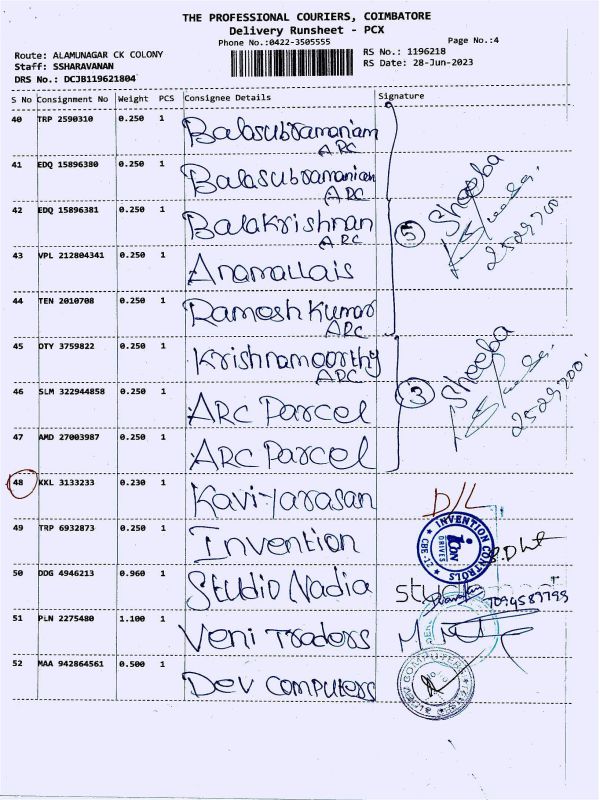 THE PROFESSIONAL COURIERS, COIMBATORE
Delivery Runsheet - PCX
Phone No.:0422-3505555
Page No.:4
Route: ALAMUNAGAR CK COLONY
RS No.: 1196218
Staff: SSHARAVANAN
RS Date: 28-Jun-2023
DRS No.: DCJB119621804
S No Consignment No Weight PCS Consignee Details Signature
40 TRP 2590310 0.250 1 Balasubramaniam
ARC
41 EDQ 15896380 0.250 1 Balasubramaniam
ARC
42 EDQ 15896381 0.250 1 Balakrishnan
ARC
5 Sheeba
43 VPL 212804341 0.250 1 Anamallais
44 TEN 2010708 0.250 1 Ramesh Kumar
ARC
45 DTY 3759822 0.250 1 Krishnamoorthy
ARC
3 Sheeba
46 SLM 322944858 0.250 1 ARC Parcel
47 AMD 27003987 0.250 1 ARC Parcel
48 KKL 3133233 0.230 1 Kaviyarasan D/L
49 TRP 6932873 0.250 1 Invention
INVENTION CONTROLS
DRIVES
CBE-12
50 DDG 4946213 0.960 1 Studio Nadia
51 PLN 2275480 1.100 1 Veni Traders
52 MAA 942864561 0.500 1 Dev Computers
DEV COMPUTERS